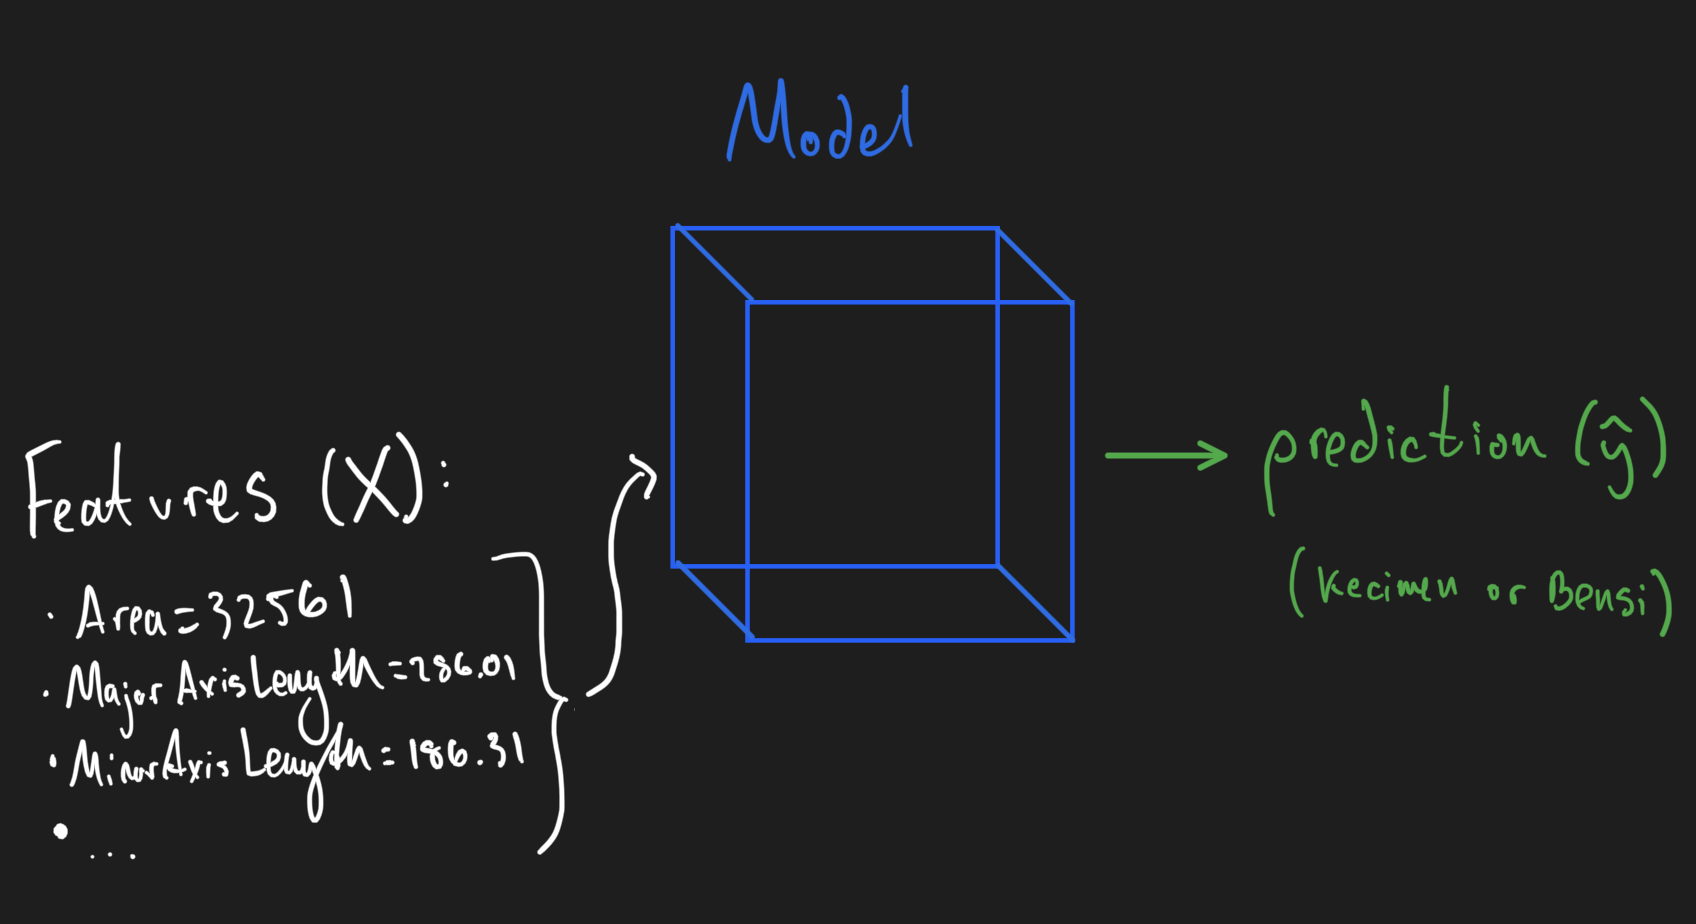 Model
Features (X):
• Area = 32561
• MajorAxisLength = 286.01
• MinorAxisLength = 186.31
• ...
prediction (ŷ)
(Kecimen or Bensi)